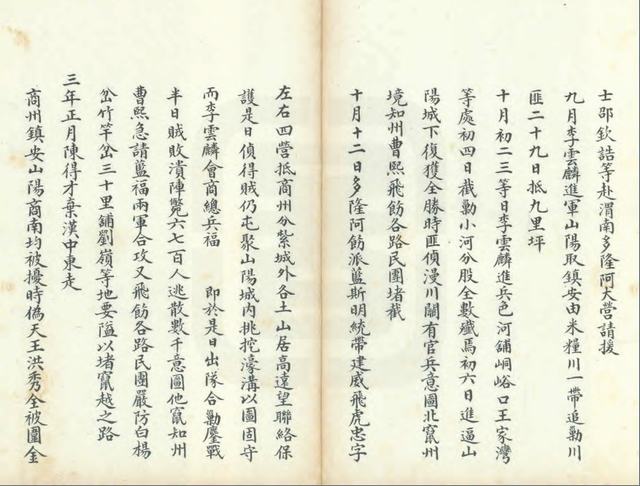 士邵欽誥等赴渭南多隆阿大營請援
九月李雲麟進軍山陽取鎮安由米糧川一帶追勦川
匪二十九日抵九里坪
十月初二三等日李雲麟進兵色河舖峒峪口王家灣
等處初四日截勦小河分股全數殲焉初六日進逼山
陽城下復獲全勝時匪偵漫川關有官兵意圖北竄州
境知州曹熙飛飭各路民團堵截
十月十二日多隆阿飭派藍斯明統帶建威飛虎忠字
左右四營抵商州分紮城外各土山居高遠望聯絡保
護是日偵得賊仍屯聚山陽城內挑挖濠溝以圖固守
而李雲麟會商總兵福 即於是日出隊合勦鏖戰
半日賊敗潰陣斃六七百人逃散數千意圖他竄知州
曹熙急請藍福兩軍合攻又飛飭各路民團嚴防白楊
岔竹竿岔三十里舖劉嶺等地要隘以堵竄越之路
三年正月陳得才棄漢中東走
商州鎮安山陽商南均被擾時偽天王洪秀全被圍金